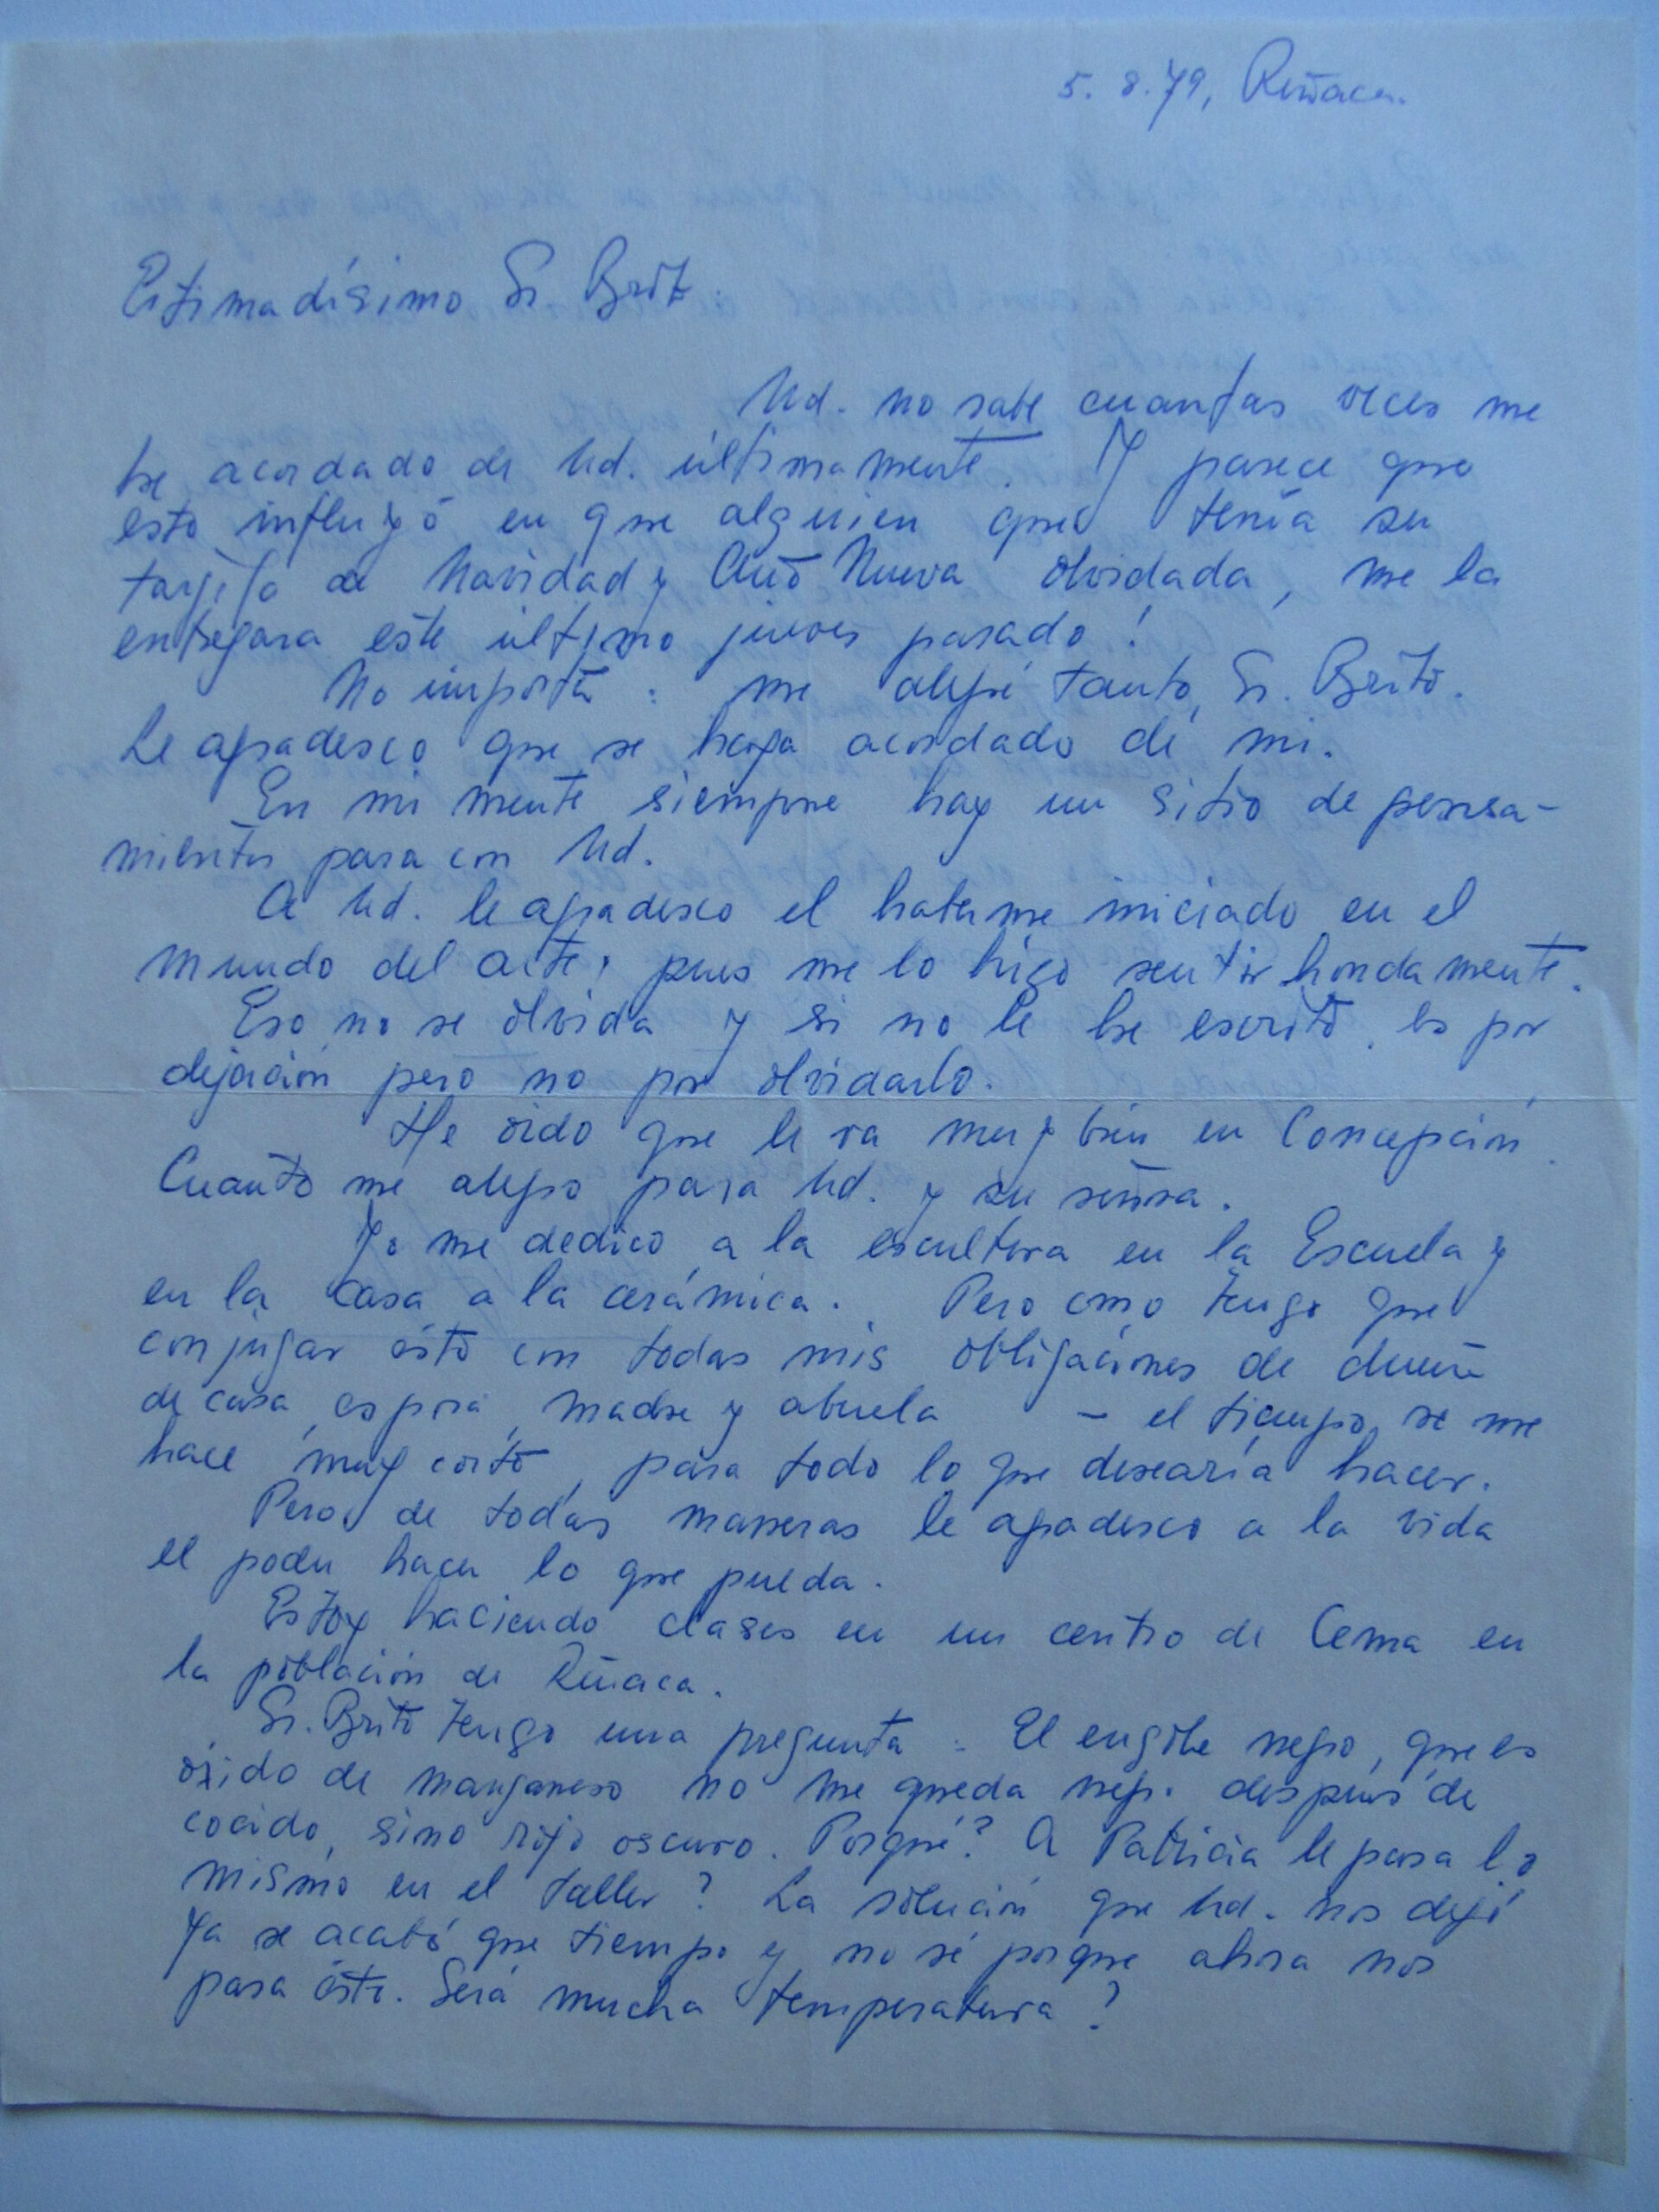 5. 8. 79, Reñaca.
Estimadísimo Sr. Brito.
Ud. no sabe cuantas veces me
he acordado de Ud. últimamente. Y parece que
esto influyó en que alguien que tenía su
tarjeta de Navidad y Año Nuevo olvidada, me la
entregara este último jueves pasado!
No importa: me alegré tanto, Sr. Brito.
Le agradesco que se haya acordado de mi.
En mi mente siempre hay un sitio de pensa-
mientos para con Ud.
A Ud. le agradesco el haberme iniciado en el
mundo del arte, pues me lo hizo sentir hondamente.
Eso no se olvida y si no le he escrito, es por
dejación pero no por olvidarlo.
He oido que le va muy bien en Concepción.
Cuanto me alegro para Ud. y su señora.
Yo me dedico a la escultura en la Escuela y
en la casa a la cerámica. Pero como tengo que
conjugar ésto con todas mis obligaciones de dueña
de casa, esposa, madre y abuela - el tiempo se me
hace muy corto, para todo lo que desearía hacer.
Pero de todas maneras le agradesco a la vida
el poder hacer lo que pueda.
Estoy haciendo clases en un centro de Cema en
la población de Reñaca.
Sr. Brito tengo una pregunta: El engobe negro, que es
óxido de manganeso no me queda negro después de
cocido, sino rojo oscuro. Porqué? A Patricia le pasa lo
mismo en el taller? La solución que Ud. nos dejó
ya se acabó que tiempo y no sé porque ahora nos
pasa ésto. Será mucha temperatura?